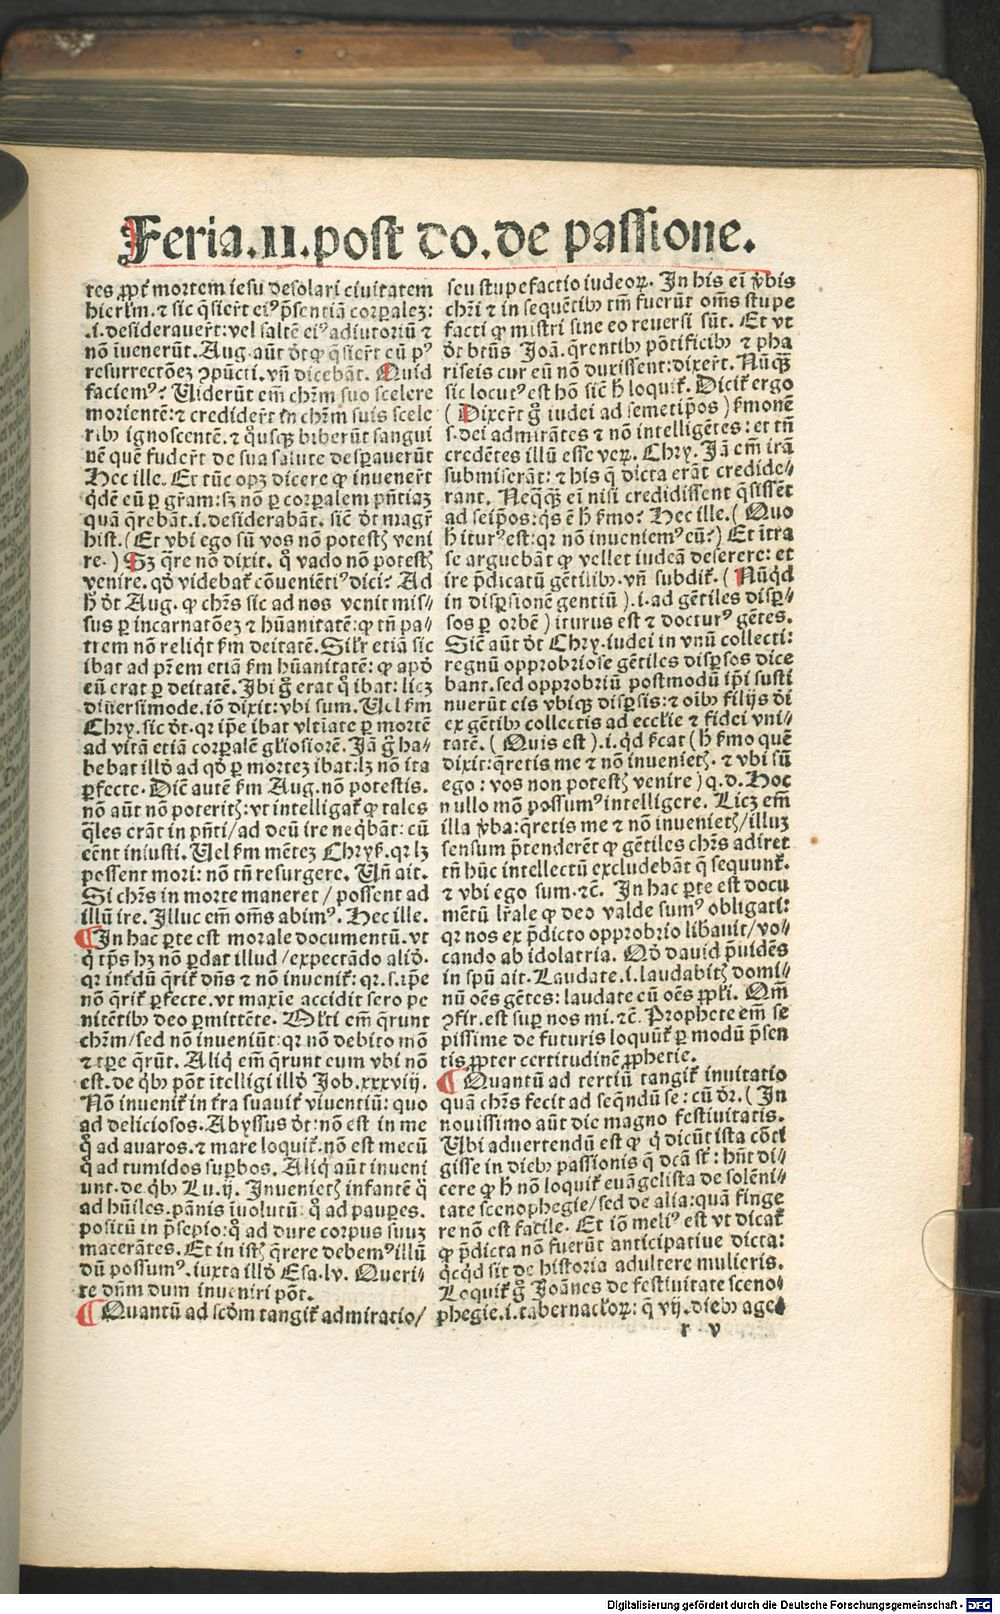 Feria.II.post do.de passione.
tes ꝓpt̃ mortem iesu desolari ciuitatem
hierl̃m.⁊ sic q̃sier̃t eiꝰ p̃sentiã corꝑalez:
.i.desiderauer̃t:vel saltẽ eiꝰ adiutoriũ ⁊
nõ īuenerũt.Aug.aũt d̃t ꝙ q̃sier̃t eũ pꝰ
resurrectõez ↄpũcti.vñ dicebãt. Quid
faciemꝰ? Uiderũt em̃ chr̃m suo scelere
morientẽ:⁊ credider̃t in chr̃m suis scele
ribꝰ ignoscentẽ.⁊ q̊usqꝫ biberũt sangui
nẽ quẽ fuder̃t de sua salute desꝑauerũt
Hec ille. Et tũc opꝫ dicere ꝙ inuener̃t
q̃dẽ eũ ꝑ gr̃am:sꝫ nõ ꝑ corꝑalem p̃ntiaꝫ
quã q̃rebãt.i.desiderabãt. sic̃ d̃t magr̃
hist.(Et vbi ego sũ vos nõ potestꝭ veni
re.) Sꝫ q̃re nõ dixit. q̊ vado nõ potestꝭ
venire.qd̃ videbat̃ cõueniẽtiꝰ dici? Ad
h̃ d̃t Aug. ꝙ chr̃s sic ad nos venit mis//
sus ꝑ incarnatõez ⁊ hũanitatẽ:ꝙ tñ pa//
trem nõ reliq̃t ẜm deitatẽ.Sil̃r etiã sic
ibat ad pr̃em etiã ẜm hũanitatẽ: ꝙ apd̃
eũ erat ꝑ deitatẽ.Ibi g̊ erat q̊ ibat: licꝫ
diũersimode.iõ dixit:vbi sum. Uel ẜm
Chry.sic d̃t.qr ip̃e ibat vltĩate ꝑ mortẽ
ad vitã etiã corꝑalẽ gl̃iosiorẽ.Iã g̊ ha//
bebat illd̃ ad qd̃ ꝑ mortez ibat:lꝫ nõ ita
ꝑfecte.Dic̃ autẽ ẜm Aug.nõ potestis.
nõ aũt nõ poteritꝭ:vt intelligat̃ ꝙ tales
q̃les erãt in p̃nti/ad deũ ire neq̃bãt: cũ
eẽnt iniusti. Uel ẜm mẽteꝫ Chryẜ.qr lꝫ
possent mori: nõ tñ resurgere. Uñ ait.
Si chr̃s in morte maneret / possent ad
illũ ire. Illuc em̃ om̃s abimꝰ. Hec ille.
¶In hac ꝑte est morale documentũ.vt
q̊ tp̃s hꝫ nõ ꝑdat illud /expectãdo alid̃.
qr inẜdũ q̃rit̃ dñs ⁊ nõ inuenit̃: qr.s.ip̃e
nõ q̃rit̃ ꝑfecte.vt maxĩe accidit sero pe
nitẽtibꝰ deo ꝑmittẽte. Ml̃ti em̃ q̃runt
chr̃m/sed nõ inueniũt: qr nõ debito mõ
⁊ tꝑe q̃rũt. Aliq̃ em̃ q̃runt eum vbi nõ
est.de q̃bꝰ põt ĩtelligi illd̃ Job.xxxviij.
Nõ inuenit̃ in t̃ra suauit̃ viuentiũ: quo
ad deliciosos.Abyssus d̃t:nõ est in me
q̊ ad auaros.⁊ mare loquit̃.nõ est mecũ
q̊ ad tumidos suꝑbos. Aliq̃ aũt inueni
unt.de q̃bꝰ Lu.ij. Inuenietꝭ infantẽ q̊
ad hũiles.pãnis ĩuolutũ: q̊ ad pauꝑes.
positũ in p̃sepio:q̊ ad dure corpus suuꝫ
macerãtes.Et in istꝭ q̃rere debemꝰ illũ
dũ possumꝰ.iuxta illd̃ Esa.lv. Queri//
te dñm dum inueniri põt.
¶Quantũ ad sc̃dm tangit̃ admiratio/
seu stupefactio iudeoꝝ. In his ei v̾bis
chr̃i ⁊ in sequẽtibꝰ tm̃ fuerũt om̃s stupe
facti ꝙ mĩstri sine eo reuersi sũt. Et vt
d̃t btũs Joã. q̃rentibꝰ põtificibꝰ ⁊ pha
riseis cur eũ nõ duxissent:dixer̃t.Nũqꝫ
sic locutꝰ est hõ sic̃ h̃ loquit̃. Dicit̃ ergo
(Dixer̃t g̊ iudei ad semetip̃os) ẜmonẽ
s.dei admirãtes ⁊ nõ intelligẽtes: et tñ
credẽtes illũ esse veꝝ. Chry. Iã em̃ irã
submiserãt: ⁊ his q̃ dicta erãt credide//
rant. Neq̃qꝫ ei nisi credidissent q̃sissẽt
ad seip̃os:q̃s ẽ h̃ ẜmo? Hec ille.( Quo
h̃ iturꝰ est:qr nõ inueniemꝰ eũ?) Et ĩtra
se arguebãt ꝙ vellet iudeã deserere: et
ire p̃dicatũ gẽtilibꝰ.vñ subdit̃.( Nũqd
in disꝑsionẽ gentiũ).i.ad gẽtiles disꝑ//
sos ꝑ orbẽ) iturus est ⁊ docturꝰ gẽtes.
Sic̃ aũt d̃t Chry.iudei in vnũ collecti:
regnũ opprobriose gẽtiles disꝑsos dice
bant.sed opprobriũ postmodũ ip̃i susti
nuerũt eis vbiqꝫ disꝑsis:⁊ oibꝰ filijs d̃i
ex gẽtibꝰ collectis ad eccl̃ie ⁊ fidei vni//
tatẽ.( Quis est ).i.q̃d ẜcat (h̃ ẜmo quẽ
dixit:q̃retis me ⁊ nõ inuenietꝭ. ⁊ vbi sũ
ego: vos non potestꝭ venire) q.d. Hoc
nullo mõ possumꝰ intelligere. Licꝫ em̃
illa vba:q̃retis me ⁊ nõ inuenietꝭ/illuꝫ
sensum p̃tenderẽt ꝙ gẽtiles chr̃s adiret
tñ hũc intellectũ excludebãt q̃ sequunt̃.
⁊ vbi ego sum.⁊c̃. In hac ꝑte est docu
mẽtũ lr̃ale ꝙ deo valde sumꝰ obligati:
qr nos ex p̃dicto opprobrio libauit/vo//
cando ab idolatria. Qd̃ dauid p̃uidẽs
in sp̃u ait. Laudate.i.laudabitꝭ domi//
nũ oẽs gẽtes: laudate eũ oẽs ꝓpl̃i. Qm̃
ↄfir.est suꝑ nos mi.⁊c̃. Prophete em̃ se
pissime de futuris loquũt̃ ꝑ modũ p̃sen
tis ꝓpter certitudinẽ ꝓphetie.
¶Quantũ ad tertiũ tangit̃ inuitatio
quã chr̃s fecit ad seq̃ndũ se: cũ d̃r. ( In
nouissimo aũt die magno festiuitatis.
Ubi aduertendũ est ꝙ q̊ dicũt ista cõti
gisse in diebꝰ passionis q̃ dcã st̃: hñt di//
cere ꝙ h̃ nõ loquit̃ euãgelista de solẽni//
tate scenophegie/sed de alia:quã finge
re nõ est facile. Et iõ meliꝰ est vt dicat̃
ꝙ p̃dicta nõ fuerũt anticipatiue dicta:
q̃cqd̃ sit de historia adultere mulieris.
Loquit̃ g̊ Joãnes de festiuitate sceno//
phegie.i.tabernacl̃oꝝ: q̃ vij.diebꝰ age
r v
Digitalisierung gefördert durch die Deutsche Forschungsgemeinschaft - DFG